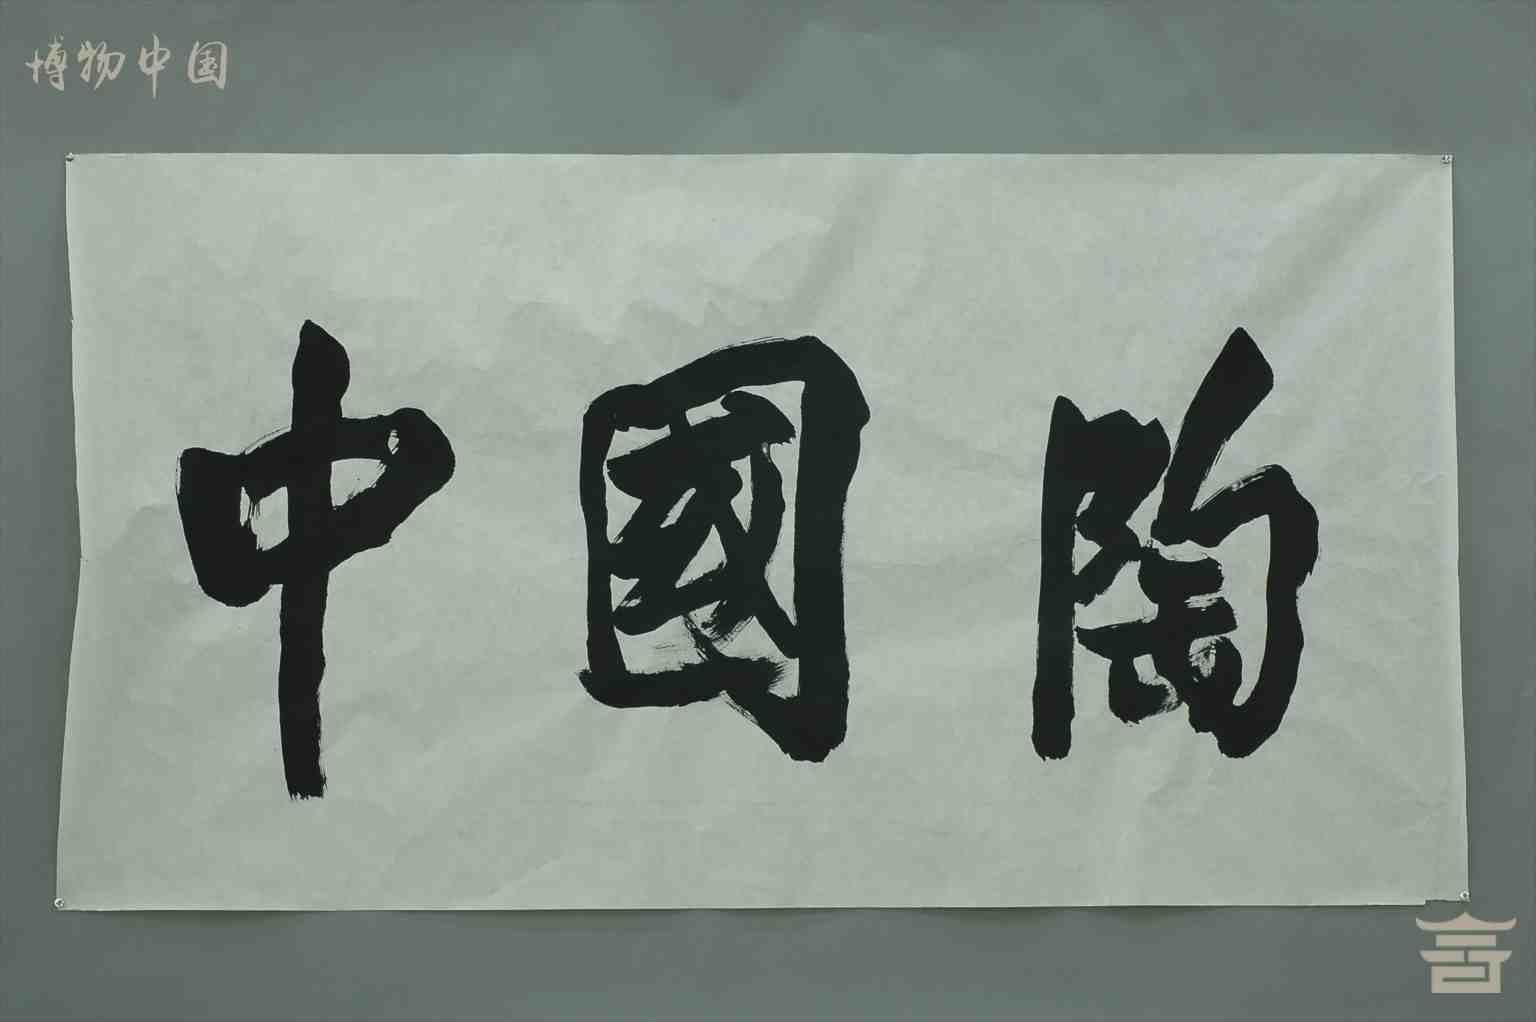 博物中国
中國陶